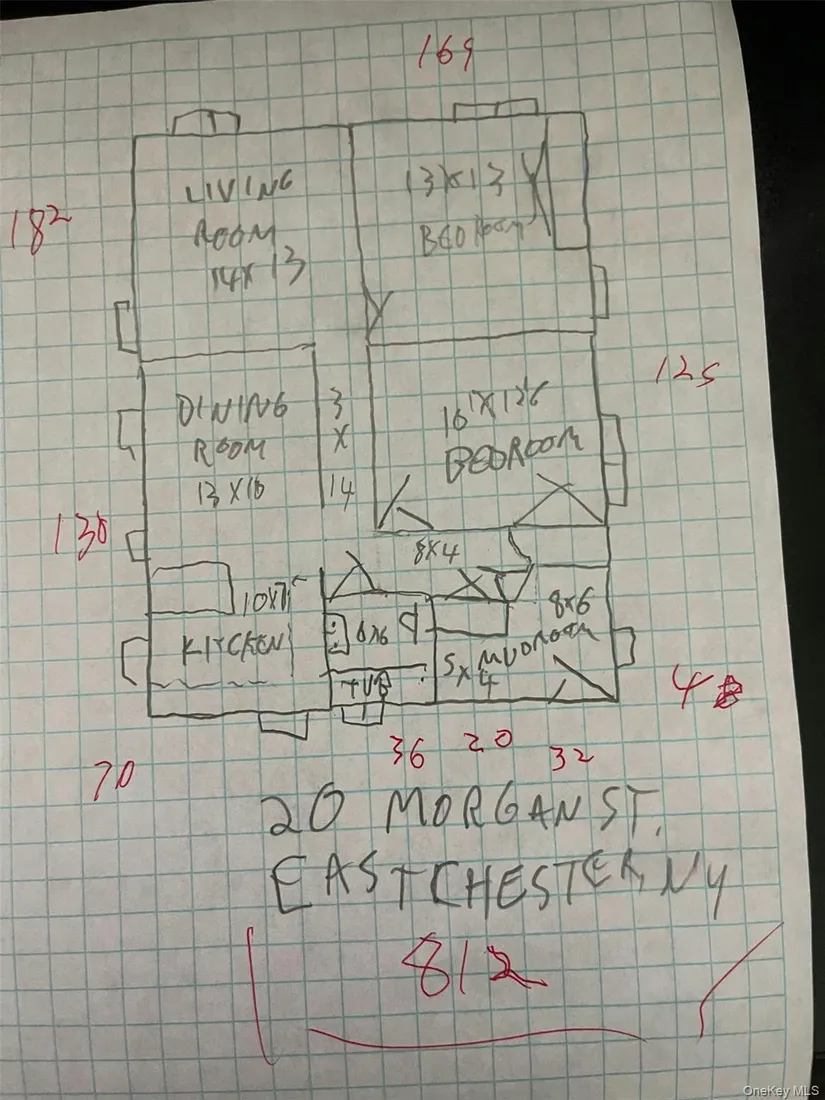 169
LIVING
ROOM
14X13
13X13
BEDROOM
182
125
DINING
ROOM
13X10
3
X
14
BEDROOM
130
8X4
KITCHEN
6X6
8X6
MUDROOM
5X4
TUB
70
36 20 32
20 MORGAN ST.
EASTCHESTER, NY
812
OneKey MLS